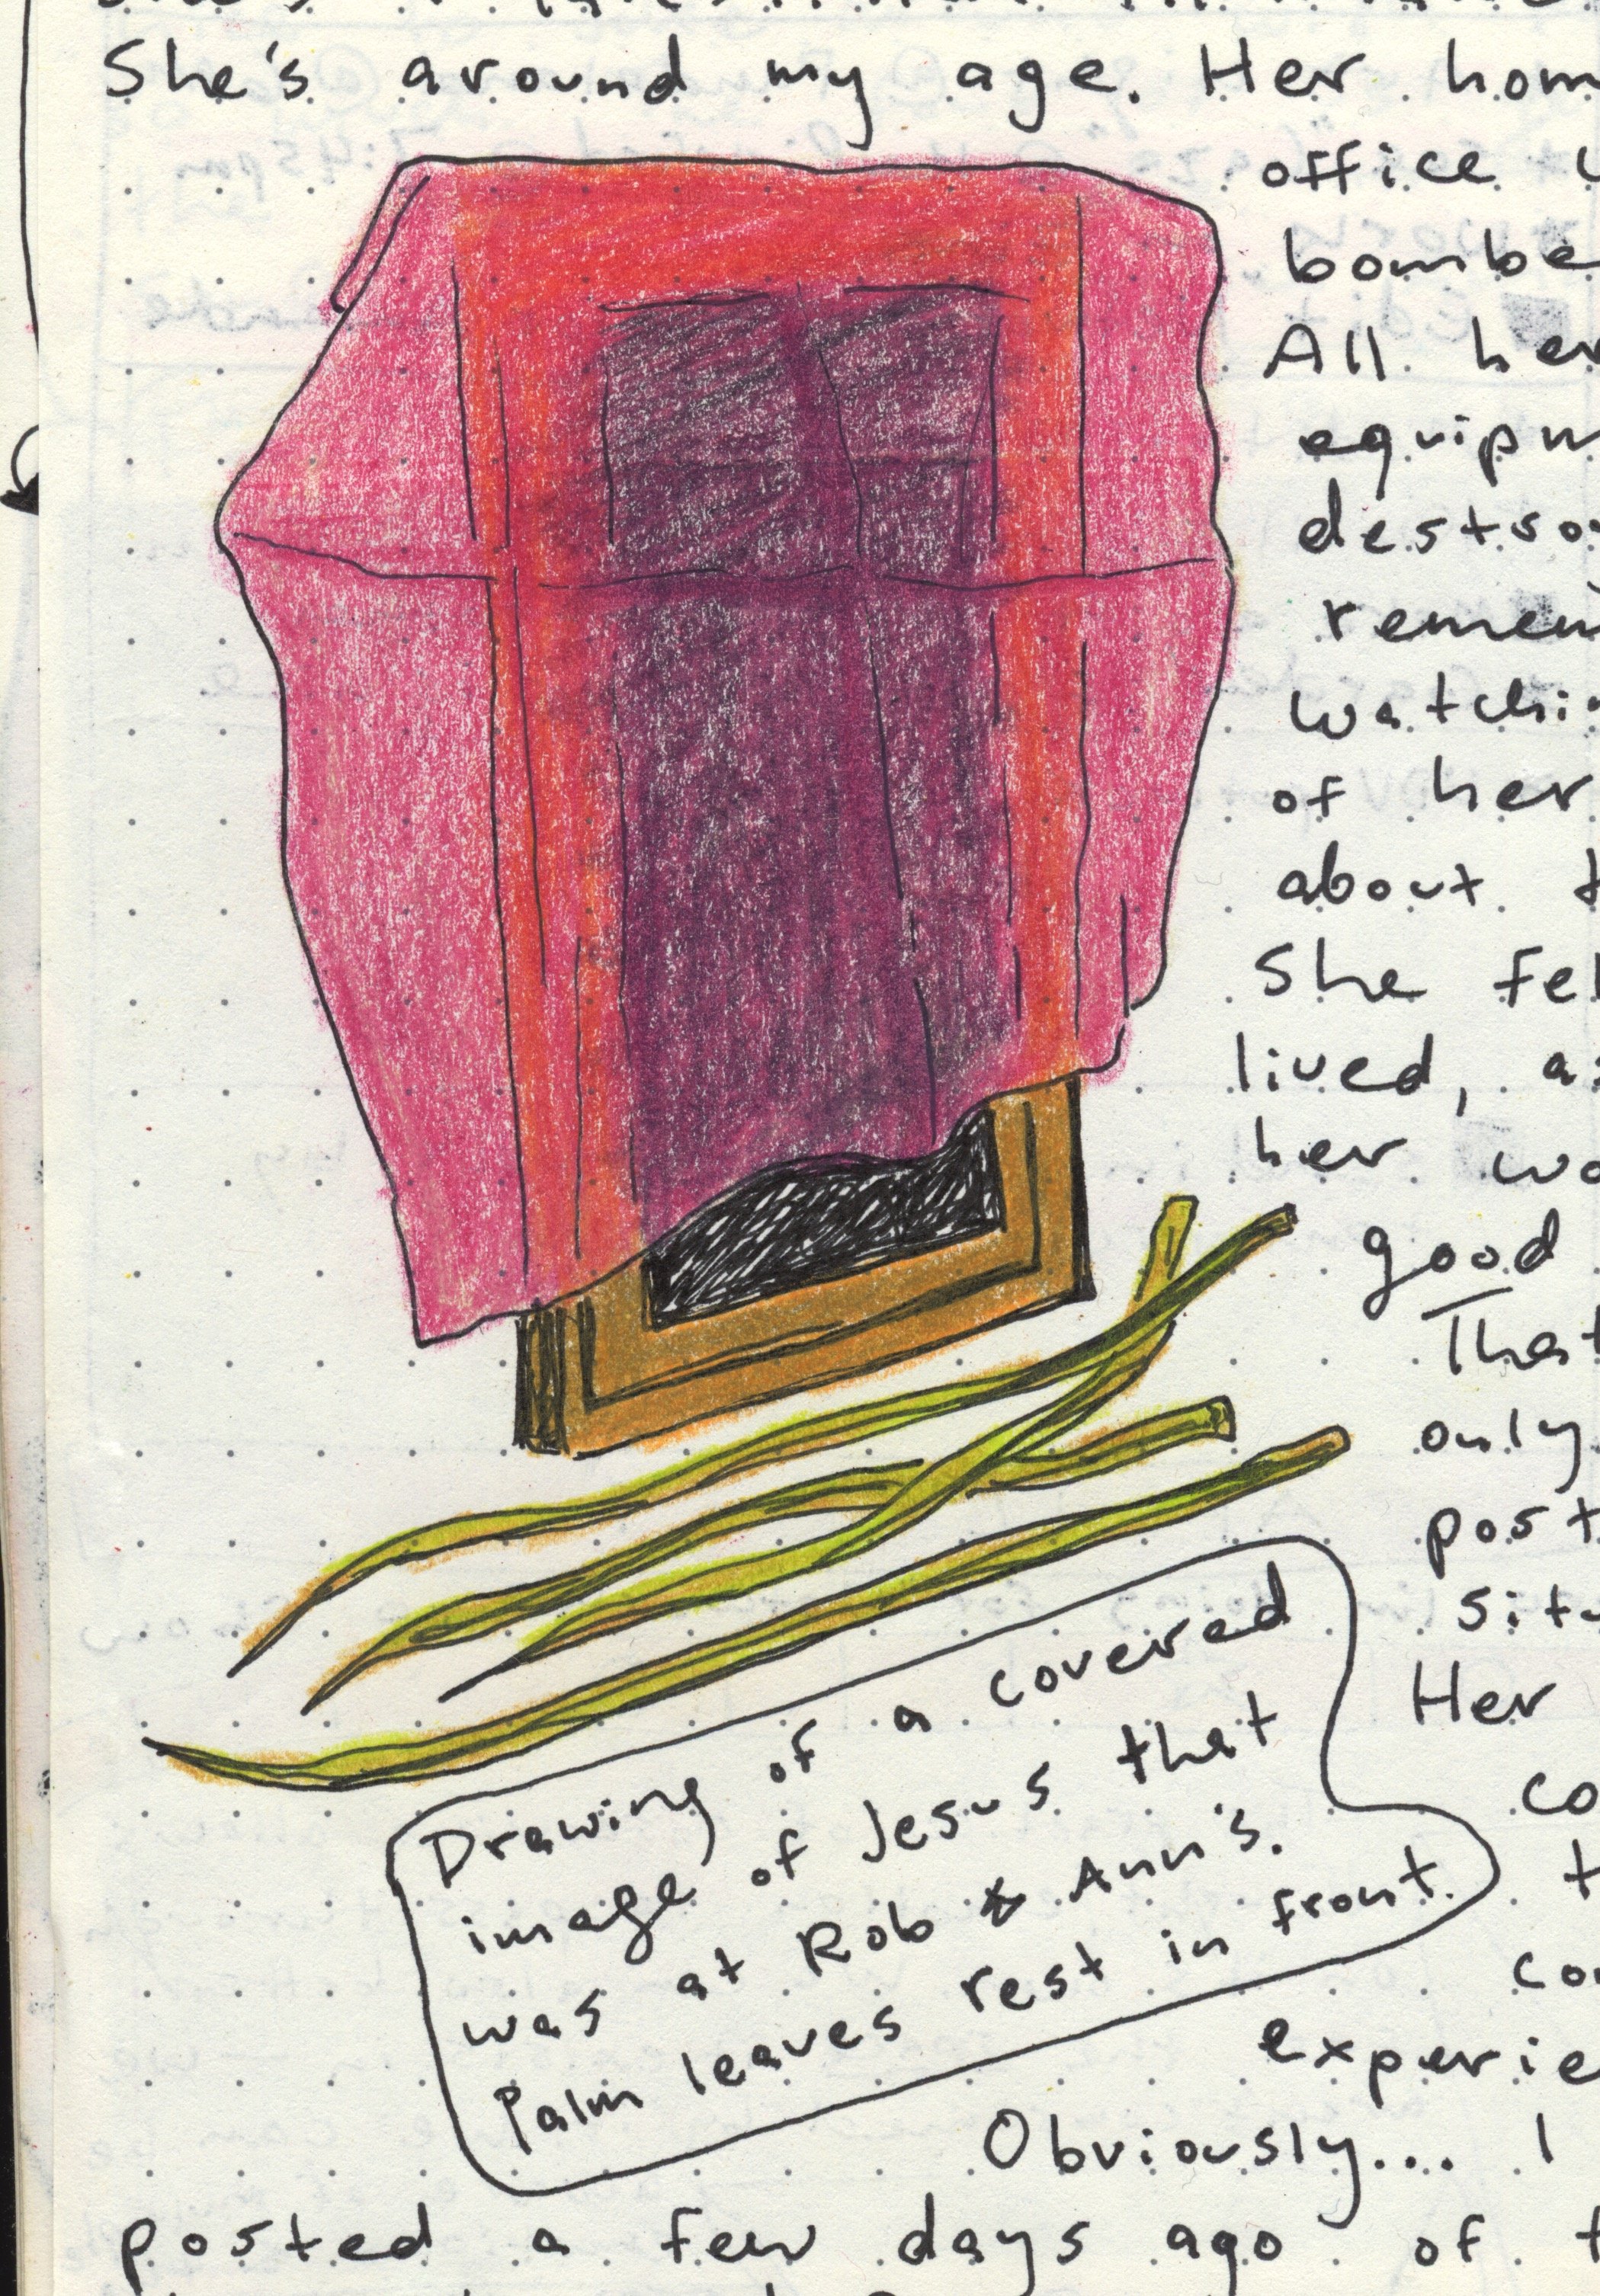 She's around my age. Her hom
office
bombe
All her
equipm
destroy
remem
watchi
of her
about t
She fel
lived, as
her wo
good
That
only
post
situ
Her
co
t
con
experie
Obviously... I
posted a few days ago of t
Drawing of a covered
image of Jesus that
was at Rob & Ann's.
Palm leaves rest in front.